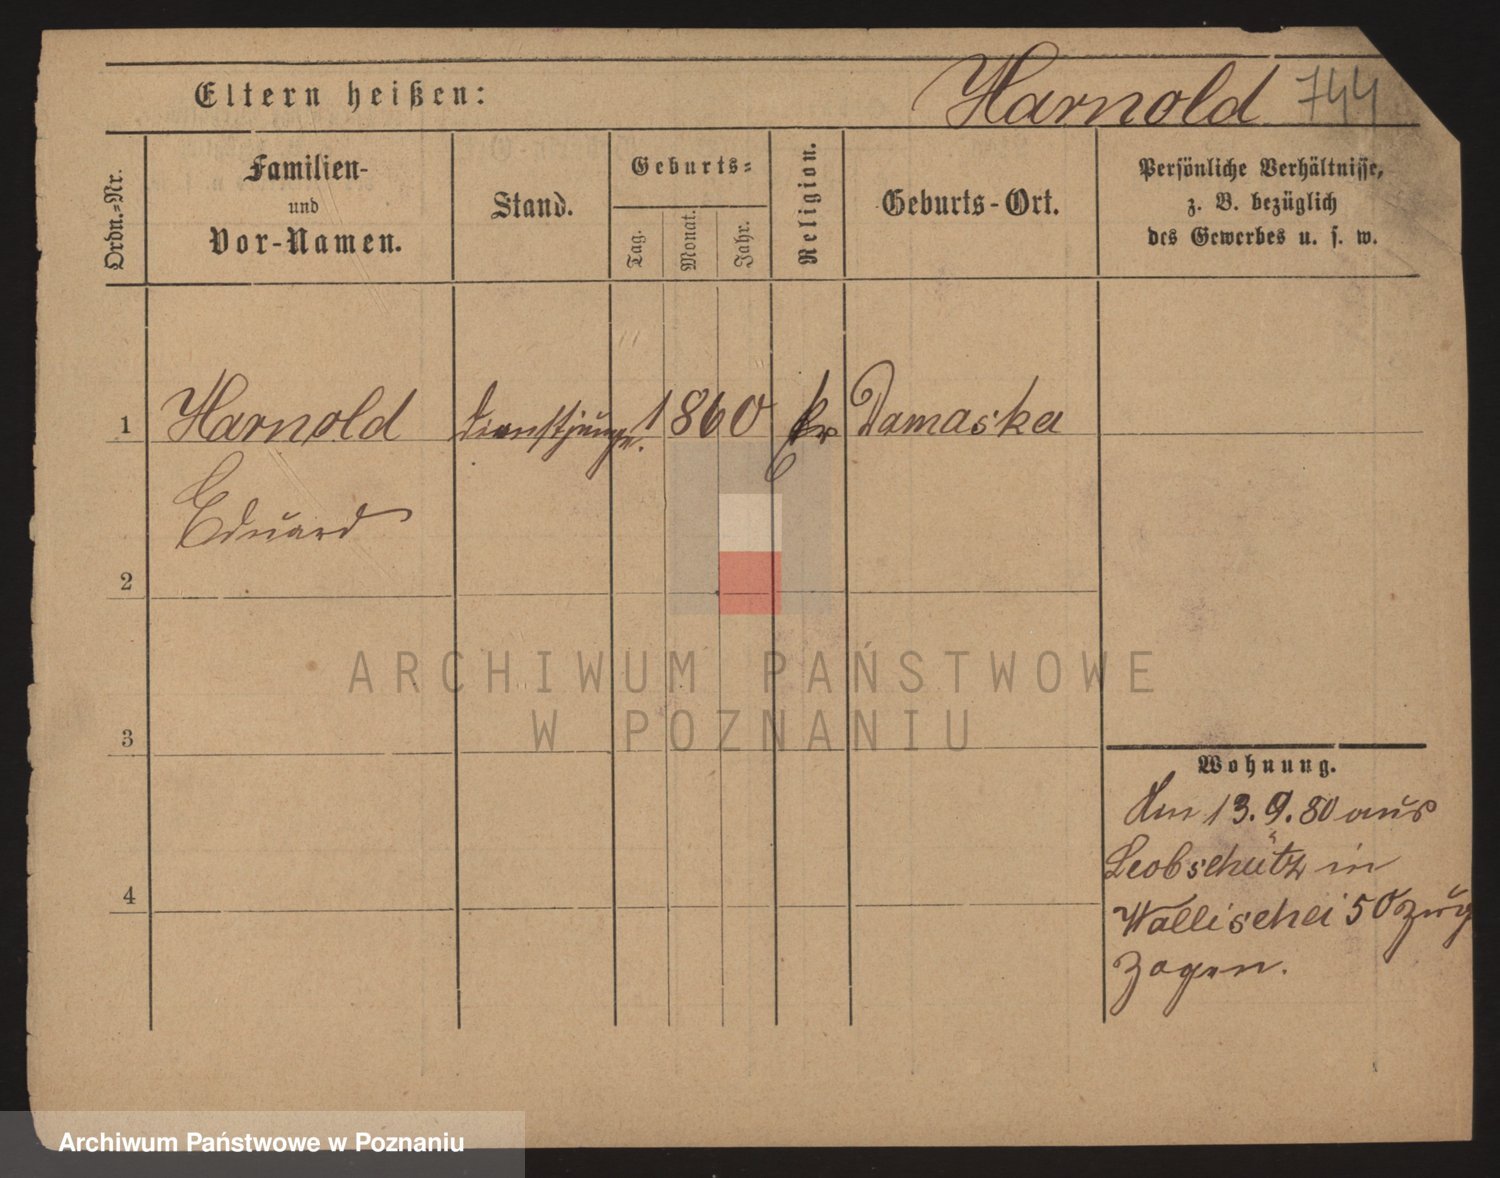 Eltern heißen:
Harnold 744
Ordn.=Nr.
Familien-
und
Vor-Namen.
Stand.
Geburts=
Tag.
Monat.
Jahr.
Religion.
Geburts-Ort.
Persönliche Verhältnisse,
z. B. bezüglich
des Gewerbes u. s. w.
1 Harnold Dienstjunge. 1860 Damaska
Eduard
2
3
4
Wohnung.
Am 13.9.80 aus
Leobschütz in
Wallischei 50 zuge
zogen.
ARCHIWUM PAŃSTWOWE
W POZNANIU
Archiwum Państwowe w Poznaniu